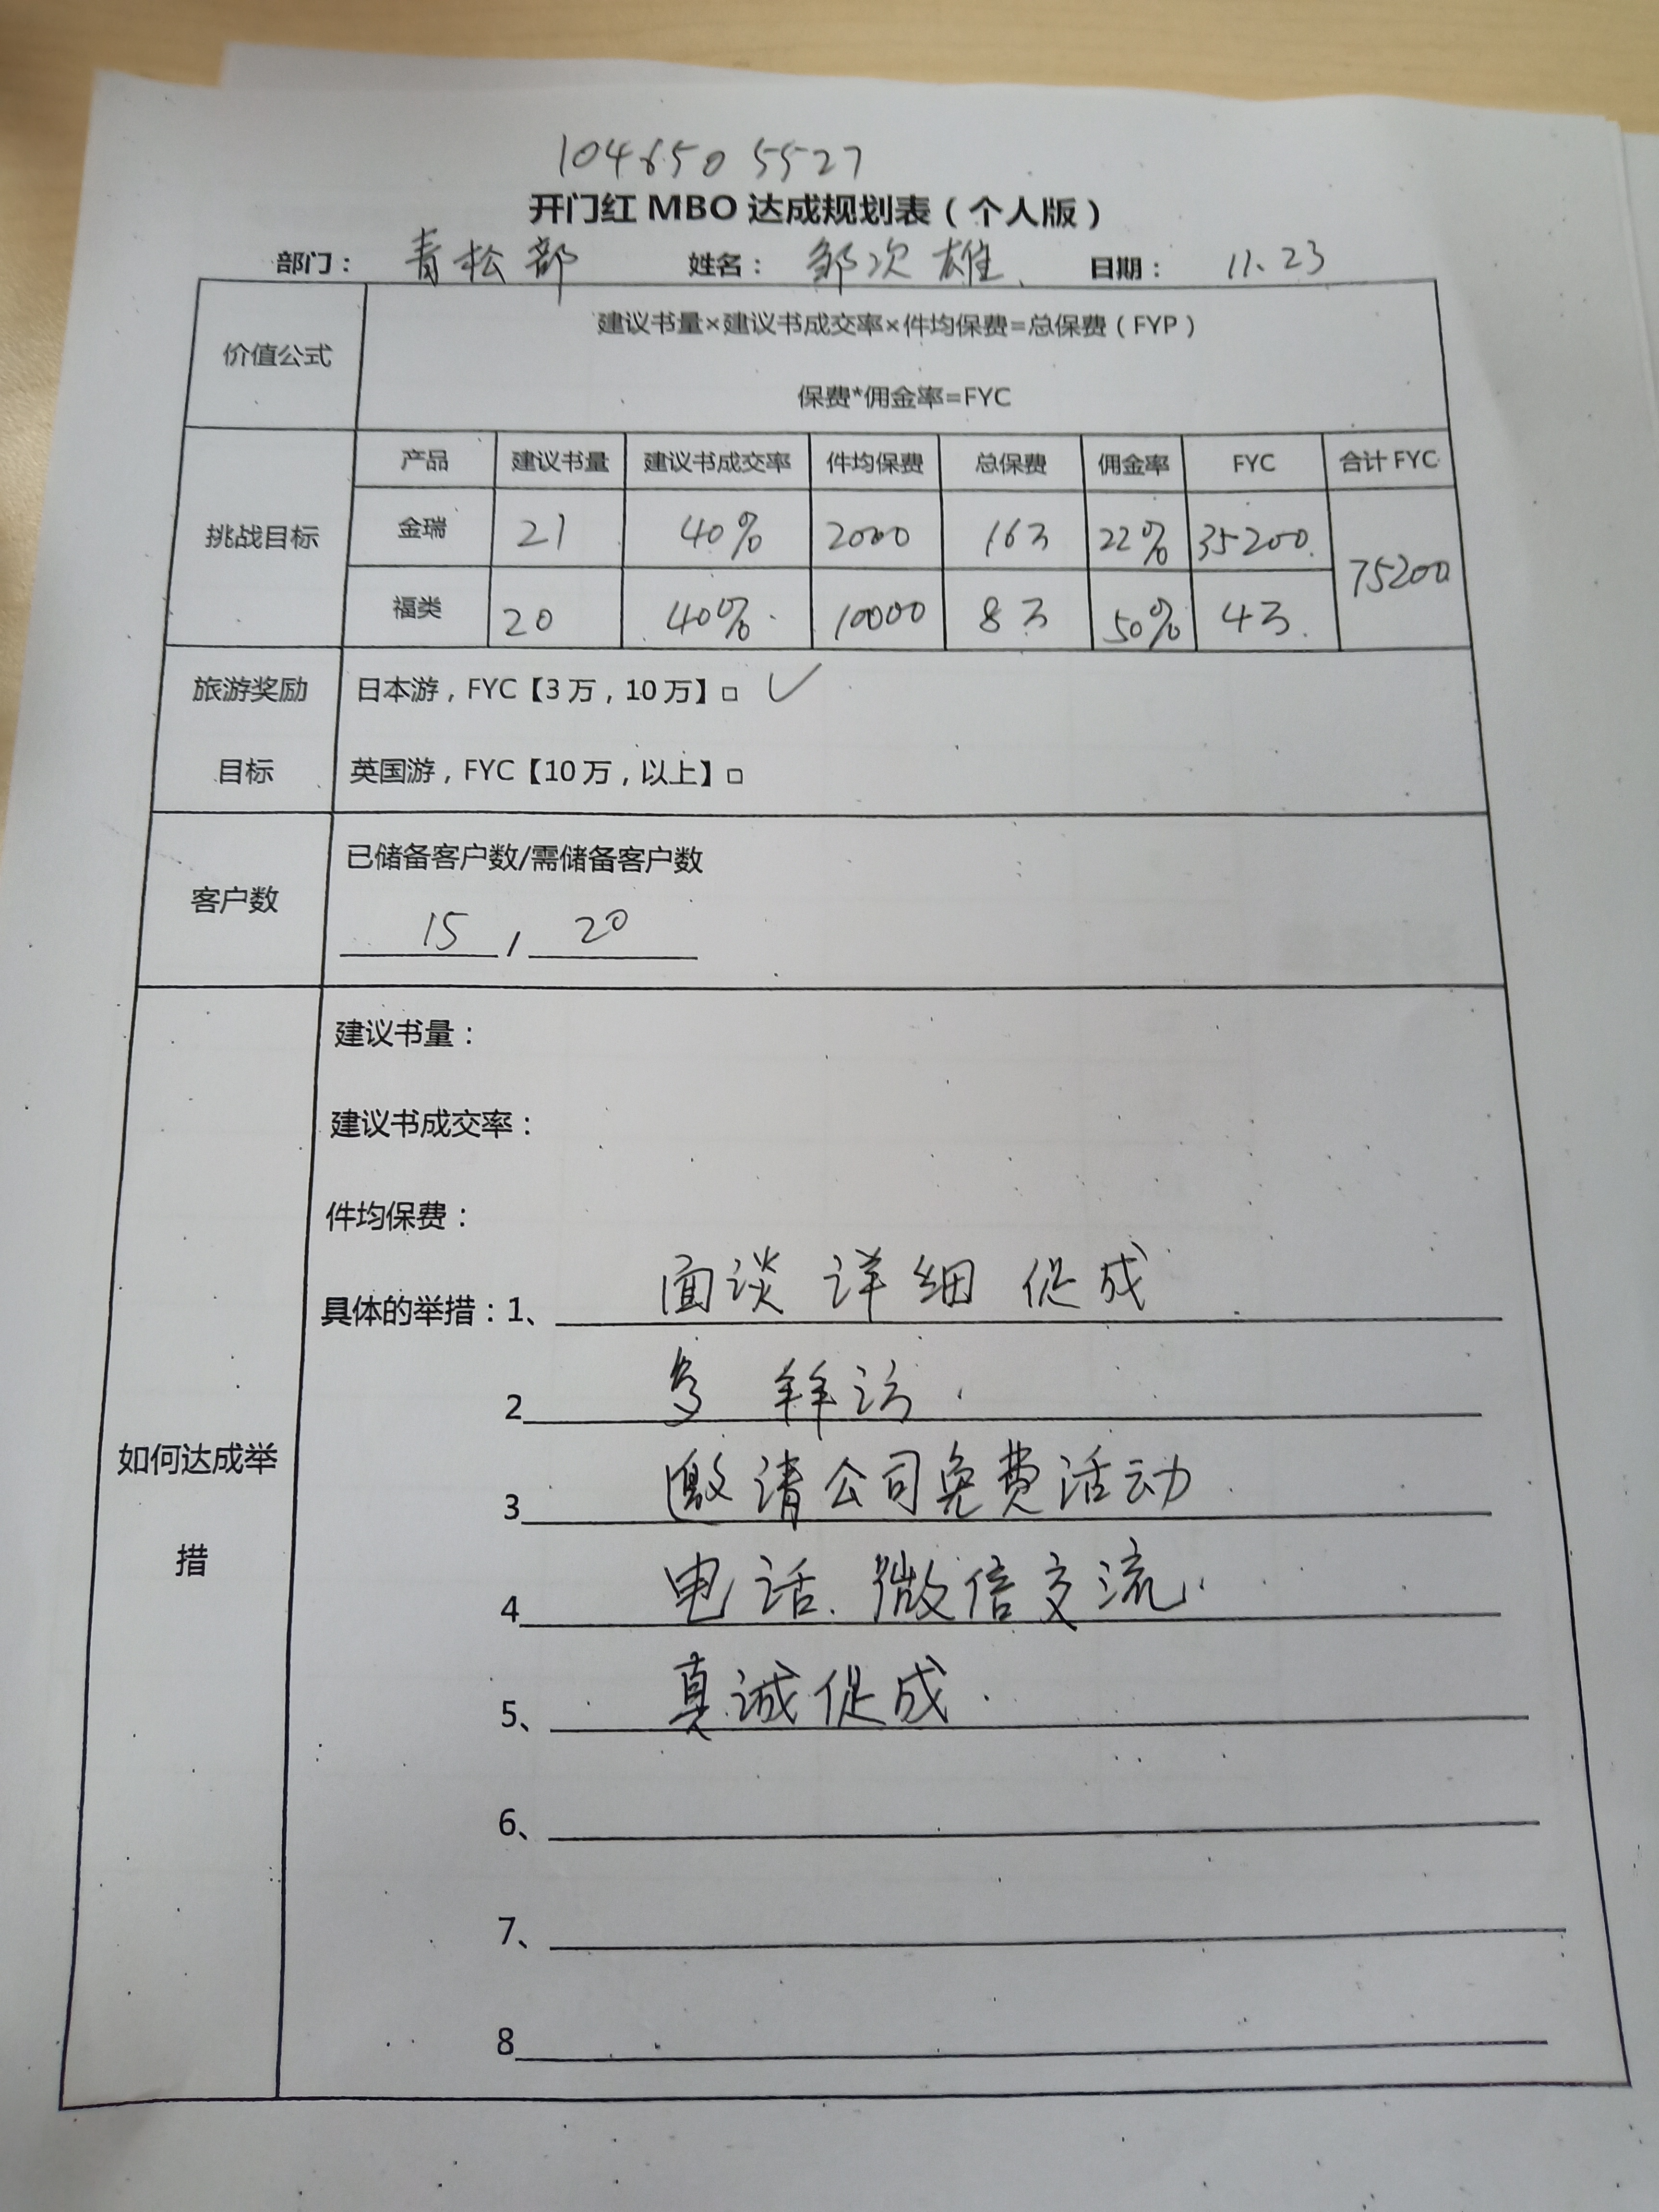 1046505527
开门红 MBO 达成规划表（个人版）
部门： 青松部 姓名： 邹次雄 日期： 11.23
价值公式
建议书量×建议书成交率×件均保费=总保费（FYP）
保费*佣金率=FYC
挑战目标
产品 建议书量 建议书成交率 件均保费 总保费 佣金率 FYC 合计 FYC
金瑞 21 40% 2000 16万 22% 35200 75200
福类 20 40% 10000 8万 50% 4万
旅游奖励
目标
日本游，FYC【3 万，10 万】□ ✓
英国游，FYC【10 万，以上】□
客户数
已储备客户数/需储备客户数
15 / 20
如何达成举
措
建议书量：
建议书成交率：
件均保费：
具体的举措：1、 面谈 详细 促成
2 多 拜访
3 邀请公司免费活动
4 电话、微信交流
5、 真诚促成
6、
7、
8